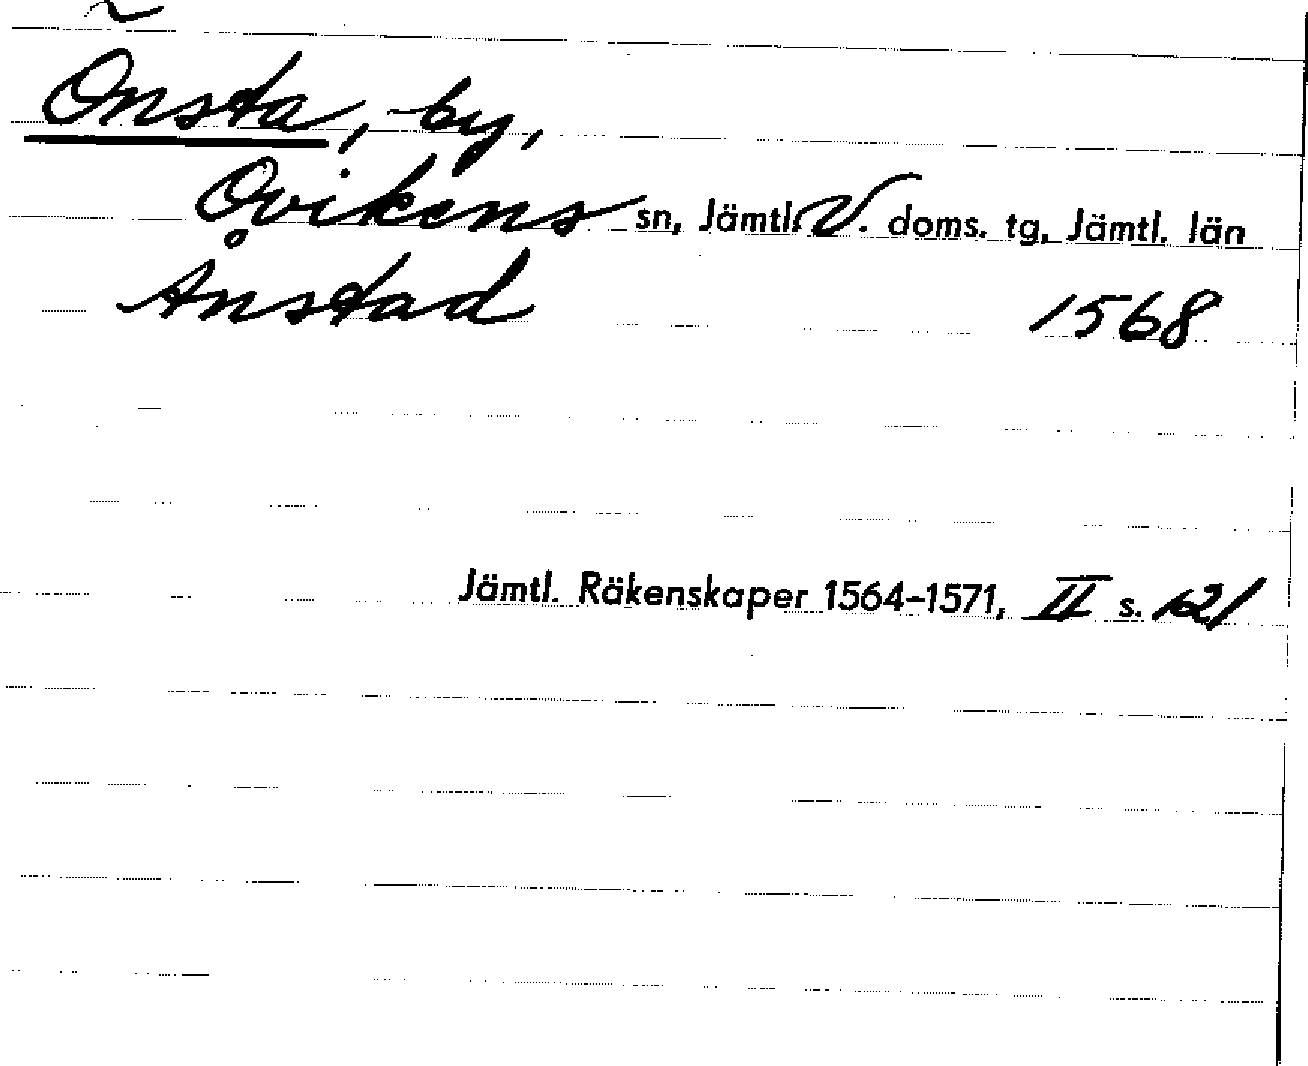 Önsta, by,
Ovikens sn, Jämtl. V. doms. tg, Jämtl. län
Ånstad 1568
Jämtl. Räkenskaper 1564-1571, II s. 121